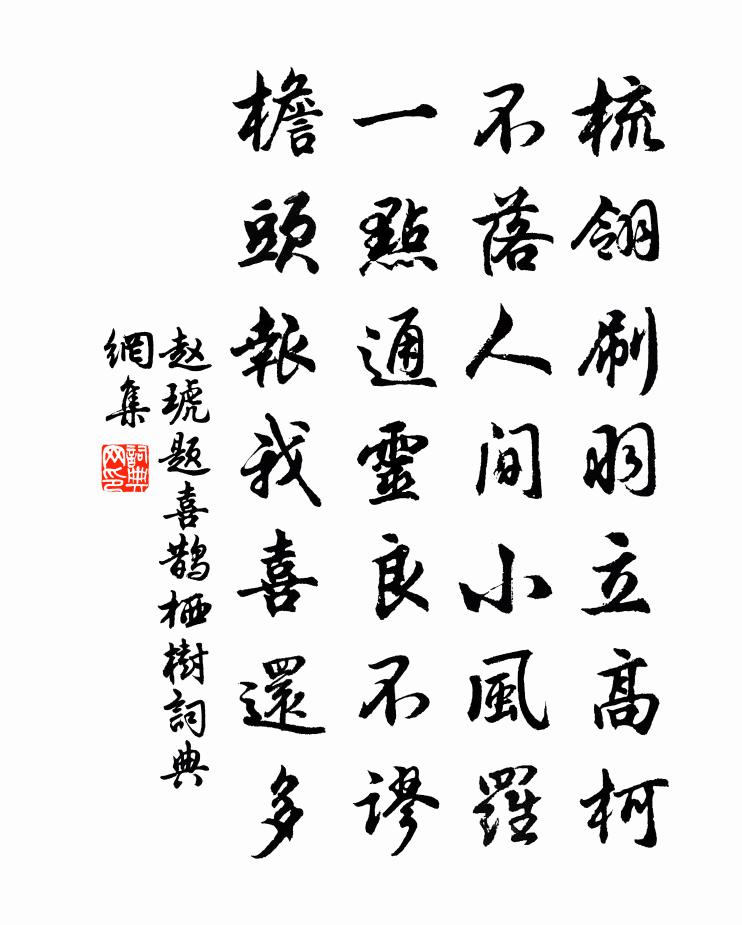 梳翎刷羽立高柯
不落人間小風羅
一點通靈良不謬
檐頭報我喜還多
赵琥题喜鹊栖樹詞典
網集
詞典
网印